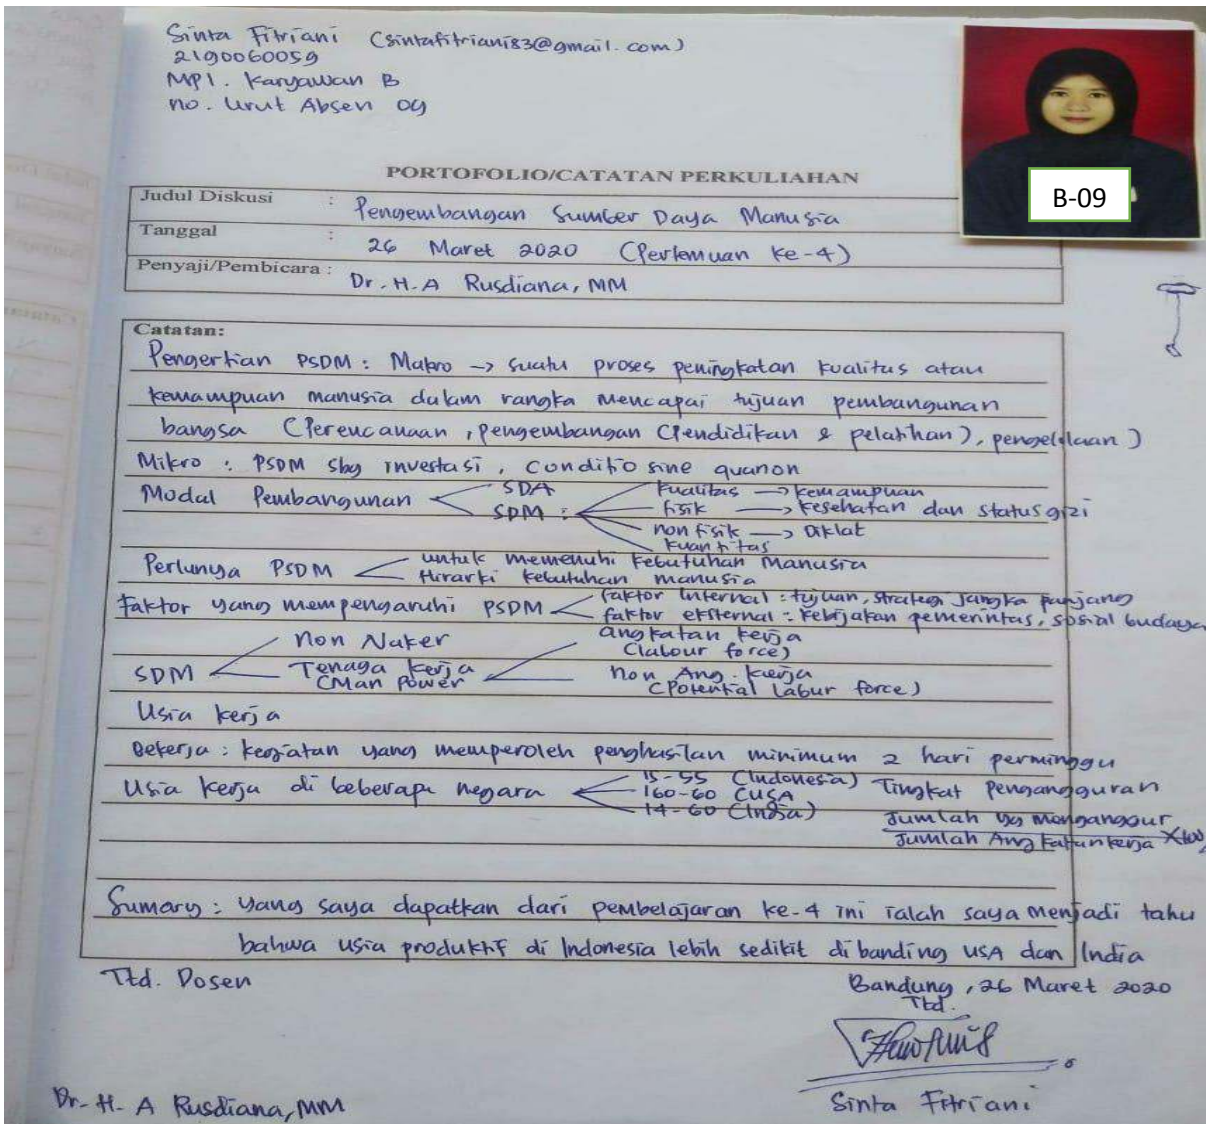 Sinta Fitriani (sintafitriani83@gmail.com)
2190060059
MPI. Karyawan B
no. Urut Absen 09
B-09
PORTOFOLIO/CATATAN PERKULIAHAN
Judul Diskusi : Pengembangan Sumber Daya Manusia
Tanggal : 26 Maret 2020 (Pertemuan ke-4)
Penyaji/Pembicara : Dr. H. A Rusdiana, MM
Catatan:
Pengertian PSDM : Makro -> suatu proses peningkatan kualitas atau
kemampuan manusia dalam rangka mencapai tujuan pembangunan
bangsa (Perencanaan, pengembangan (Pendidikan & pelatihan), pengelolaan)
Mikro : PSDM sbg investasi, conditio sine quanon
Modal Pembangunan
SDA
SDM :
kualitas -> kemampuan
fisik -> kesehatan dan status gizi
non fisik -> Diklat
kuantitas
Perlunya PSDM
untuk memenuhi kebutuhan Manusia
Hirarki kebutuhan manusia
Faktor yang mempengaruhi PSDM
faktor internal : tujuan, strategi jangka panjang
faktor eksternal : kebijakan pemerintas, sosial budaya
SDM
non Naker
Tenaga kerja
(Man Power
angkatan kerja
(labour force)
non Ang. kerja
(Potential labur force)
Usia kerja
Bekerja : kegiatan yang memperoleh penghasilan minimum 2 hari perminggu
Usia kerja di beberapa negara
15-55 (Indonesia)
160-60 (USA
14-60 (India)
Tingkat Pengangguran
Jumlah yg menganggur
Jumlah Angkatan kerja X100
Sumary : yang saya dapatkan dari pembelajaran ke-4 ini ialah saya menjadi tahu
bahwa usia produktif di Indonesia lebih sedikit dibanding USA dan India
Ttd. Dosen
Bandung, 26 Maret 2020
Ttd.
Dr. H. A Rusdiana, MM
Sinta Fitriani